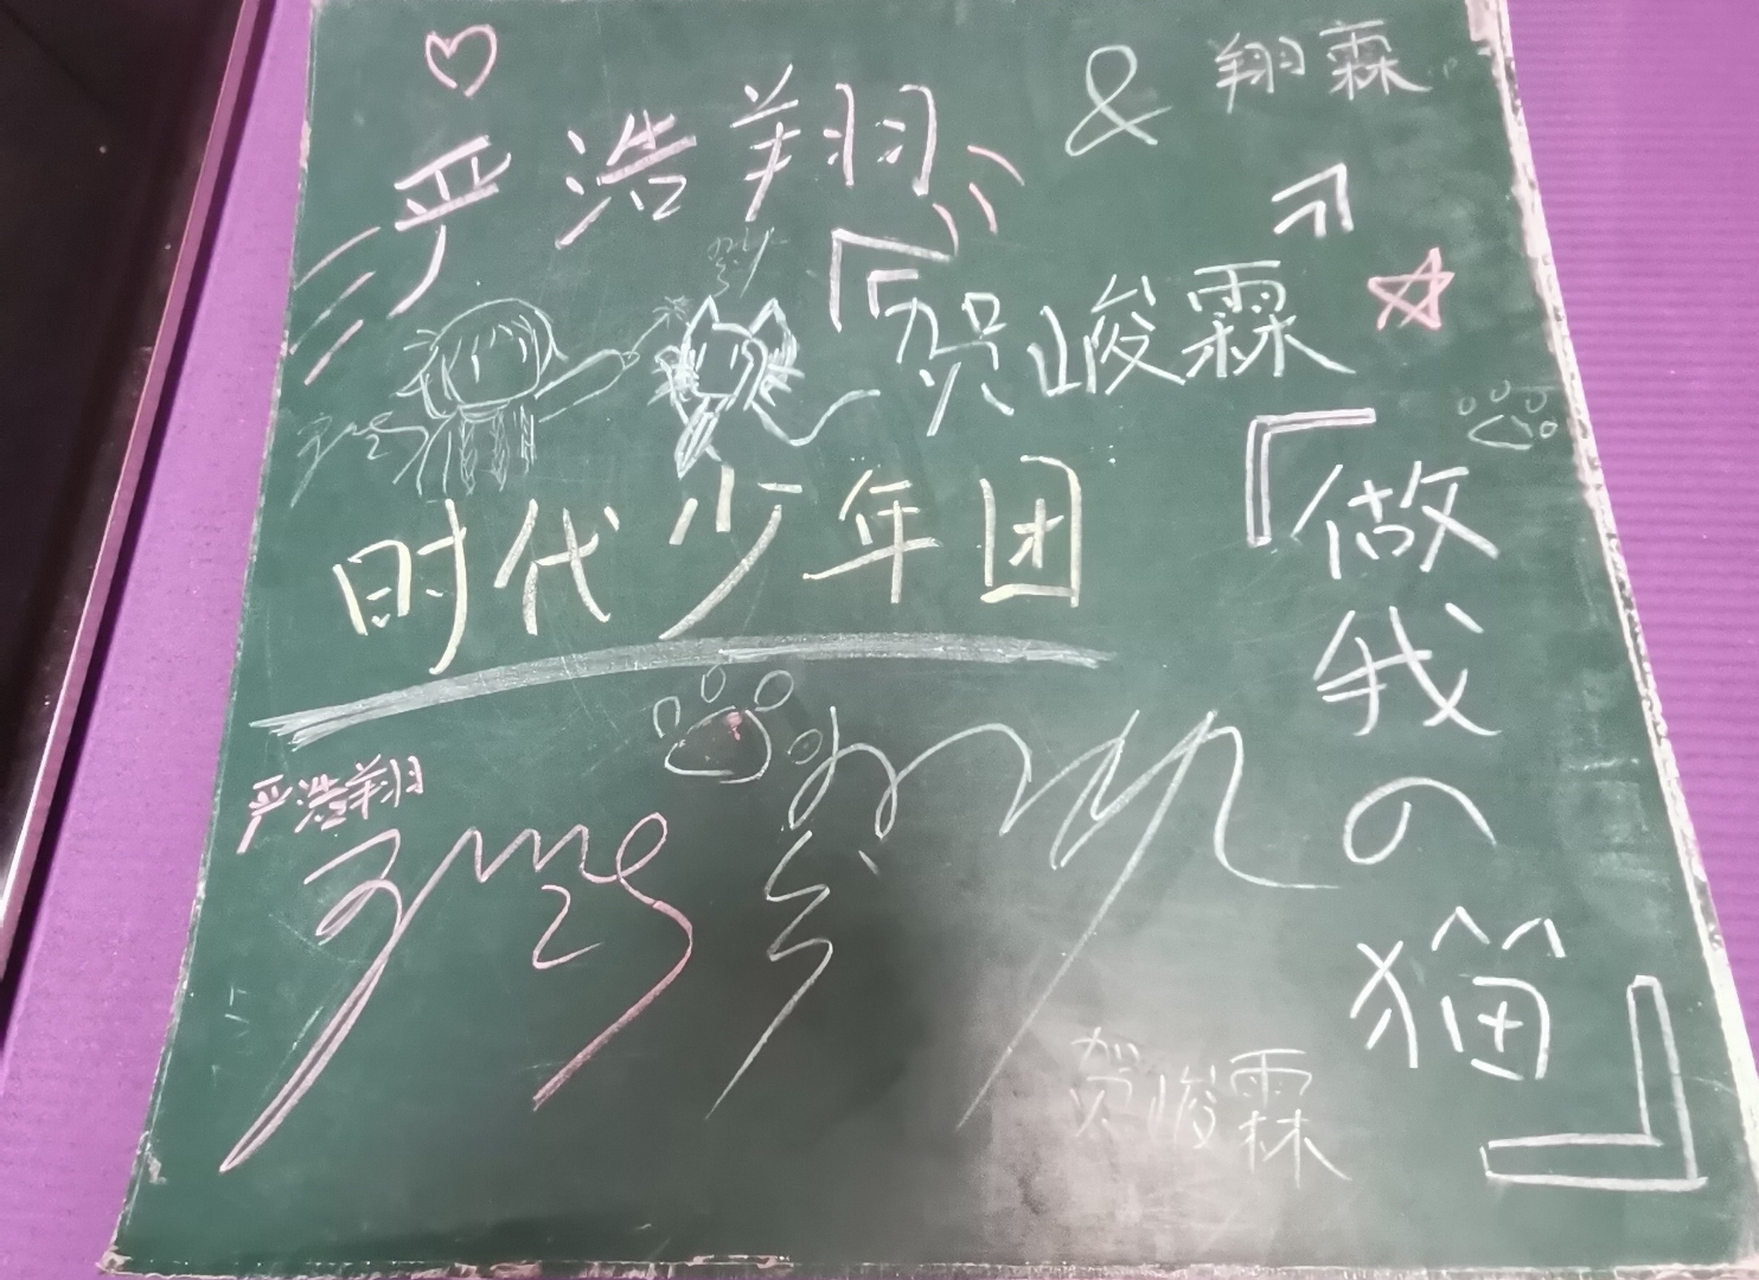 严浩翔
& 翔霖
『贺峻霖』
时代少年团
『做我の猫』
严浩翔
贺峻霖